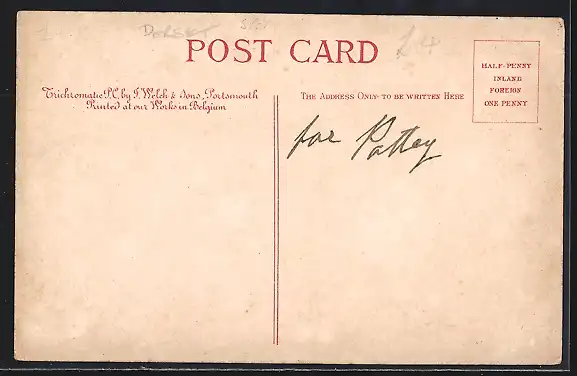 DORSET
£4
POST CARD
Trichromatic P.C. by J. Welch & Sons, Portsmouth
Printed at our Works in Belgium
THE ADDRESS ONLY TO BE WRITTEN HERE
HALF-PENNY
INLAND
FOREIGN
ONE PENNY
for Pattey